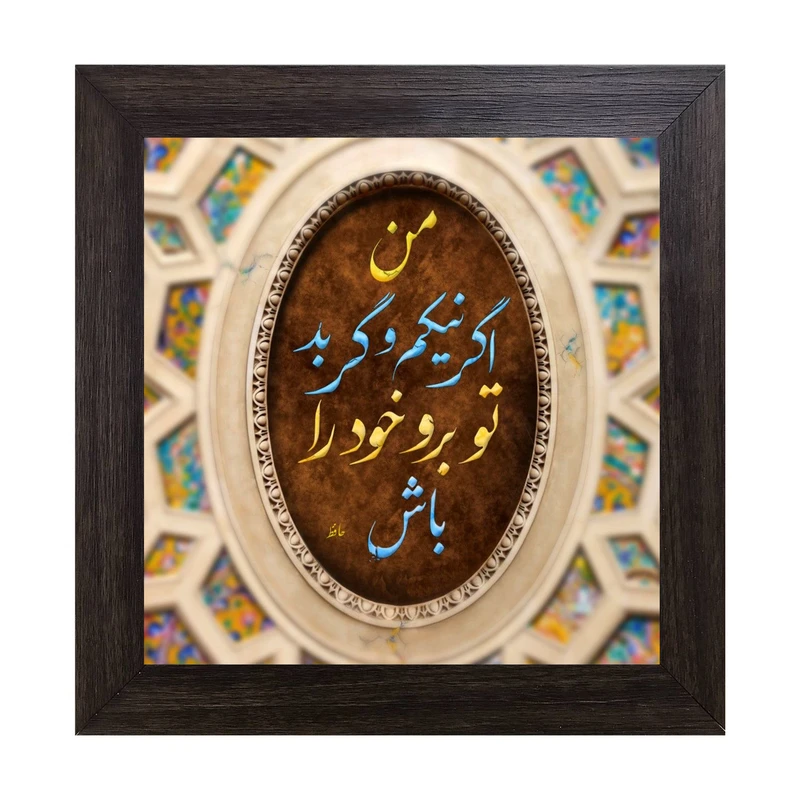 من
اگر نیکم و گر بد
تو برو خود را
باش
حافظ